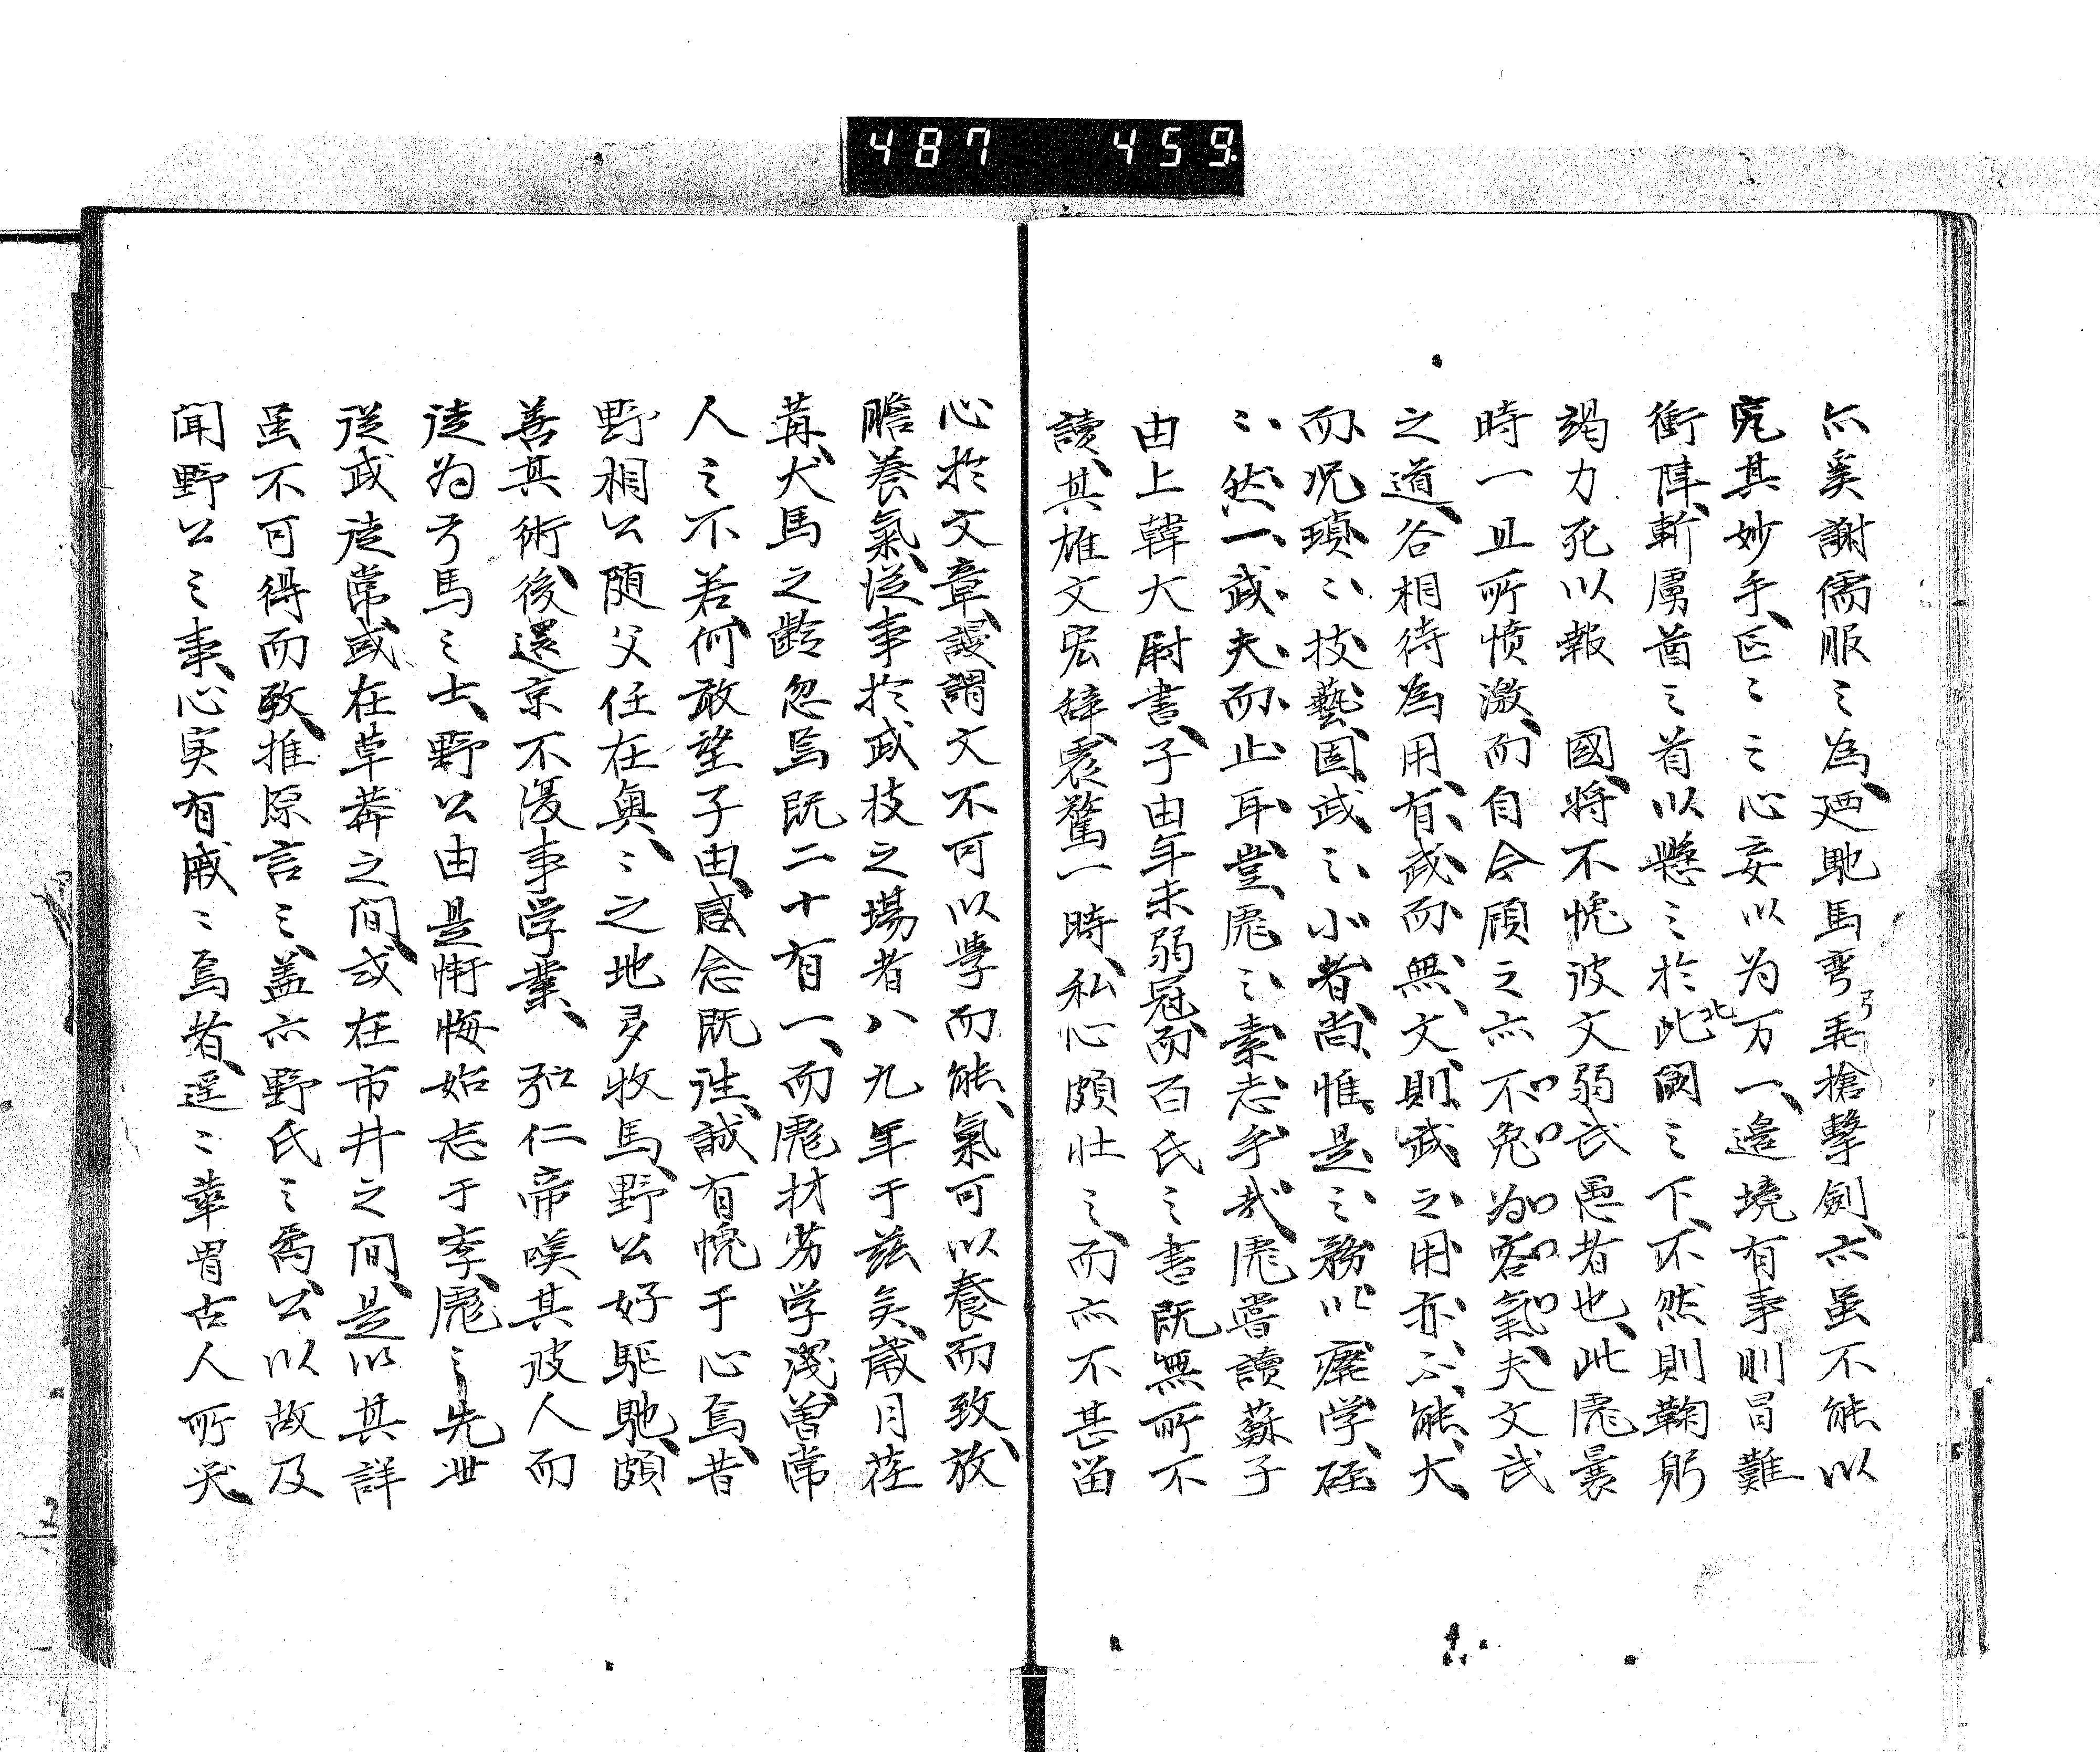 487 459
尓奚謝儒服之為、廼馳馬弯弓弄搶擊劍、亦虽不能以
究其妙手、区々之心妄以为万一、邉境有事則冒難
衝陣、斬虜酋之首以懸之於此闕之下、不然則鞠躬
竭力死以報 國、將不愧彼文弱武愚者也、此彪曩
時一旦所憤激、而自今顧之亦不免为客氣、夫文武
之道、各相待為用、有武而無文、則武之用亦不能大、
而况瑣々技藝、固武之小者、尚惟是之務以廃学、硜
々然一武夫而止耳、豈彪之素志乎哉、彪嘗讀蘇子
由上韓大尉書、子由年未弱冠、而百氏之書既無所不
讀、其雄文宏辞、震驚一時、私心頗壮之、而亦不甚畄
心於文章、謾謂文不可以学而能、氣可以養而致、放
膽養氣、従事於武技之場者八九年于兹矣、歳月荏
苒、犬馬之齡忽焉既二十有一、而彪材劣学淺、曽常
人之不若、何敢望子由、感念既往、誠有愧于心焉、昔
野相公随父任在奥、々之地多牧馬、野公好駆馳、頗
善其術、後還京不復事学業、弘仁帝嘆其彼人而
徒为弓馬之士、野公由是慚悔始志于学、彪之先世
従武徒常、或在草莽之间、或在市井之间、是以其詳
虽不可得而致、推原言之、盖亦野氏之裔、公以故及
闻野公之事、心実有戚々焉者、遥々華胄古人所笑、